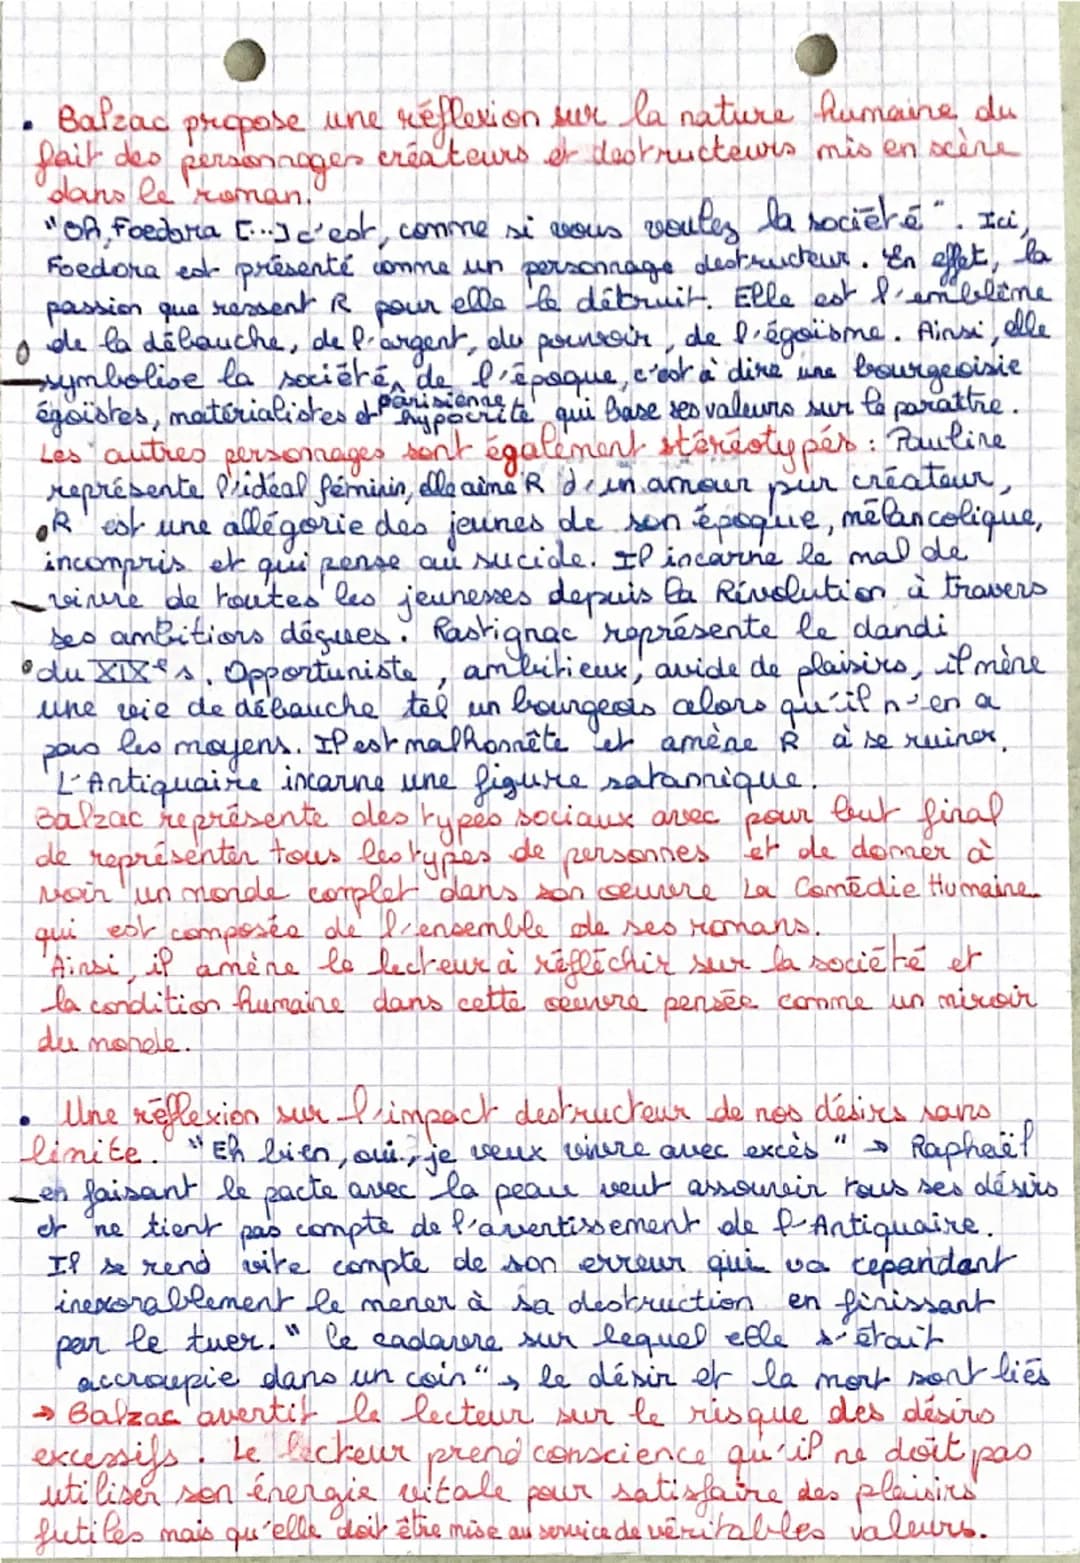 • Balzac propose une réflexion sur la nature humaine du
fait des personnages créateurs et destructeurs mis en scène
dans le roman.
"Oh, Foedora [...] c'est, comme si vous voulez la société". Ici,
Foedora est présenté comme un personnage destructeur. En effet, la
passion que ressent R pour elle le détruit. Elle est l'emblème
de la débauche, de l'argent, du pouvoir, de l'égoïsme. Ainsi, elle
symbolise la société de l'époque, c'est à dire une bourgeoisie
parisienne
égoïstes, matérialistes et hypocrite qui base ses valeurs sur le paraître.
Les autres personnages sont également stéréotypés : Pauline
représente l'idéal féminin, elle aime R d'un amour pur créateur,
R est une allégorie des jeunes de son époque, mélancolique,
incompris et qui pense au sucide. Il incarne le mal de
vivre de toutes les jeunesses depuis la Révolution à travers
ses ambitions déçues. Rastignac représente le dandi
du XIXe s. Opportuniste, ambitieux, avide de plaisirs, il mène
une vie de débauche tel un bourgeois alors qu'il n'en a
pas les moyens. Il est malhonnête et amène R à se ruiner.
L'Antiquaire incarne une figure satannique.
Balzac représente des types sociaux avec pour but final
de représenter tous les types de personnes et de donner à
voir un monde complet dans son oeuvre La Comédie Humaine
qui est composée de l'ensemble de ses romans.
Ainsi, il amène le lecteur à réfléchir sur la société et
la condition humaine dans cette oeuvre pensée comme un miroir
du monde.
• Une réflexion sur l'impact destructeur de nos désirs sans
limite. "Eh bien, oui, je veux vivre avec excès" → Raphaël
en faisant le pacte avec la peau veut assouvir tous ses désirs
et ne tient pas compte de l'avertissement de l'Antiquaire.
Il se rend vite compte de son erreur qui va cependant
inexorablement le mener à sa destruction en finissant
par le tuer. "le cadavre sur lequel elle s'était
accroupie dans un coin" → le désir et la mort sont liés
→ Balzac avertit le lecteur sur le risque des désirs
excessifs. Le lecteur prend conscience qu'il ne doit pas
utiliser son énergie vitale pour satisfaire des plaisirs
futiles mais qu'elle doit être mise au service de véritables valeurs.